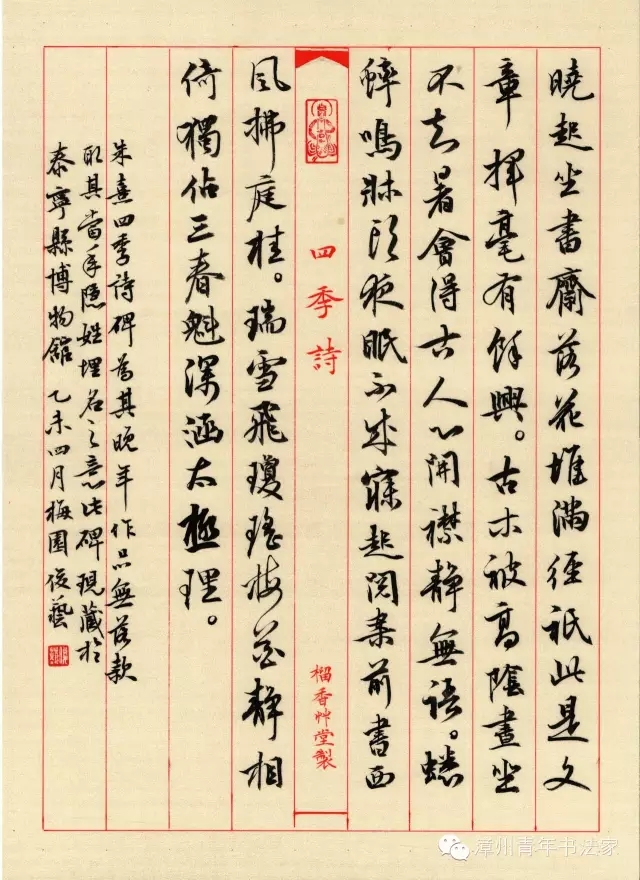 曉起坐書齋落花堆滿徑祇此是文
章揮毫有餘興。古木被高陰晝坐
不知暑會得古人心開襟靜無語。蟋
蟀鳴牀頭夜眠不成寐起閱案前書西
四季詩
榴香艸堂製
風拂庭桂。瑞雪飛瓊瑤梅花靜相
倚獨佔三春魁深涵太極理。
朱熹四季詩碑為其晚年作品無落款
取其當年隱姓埋名之意此碑現藏於
泰寧縣博物館 乙未四月梅園俊藝
漳州青年书法家